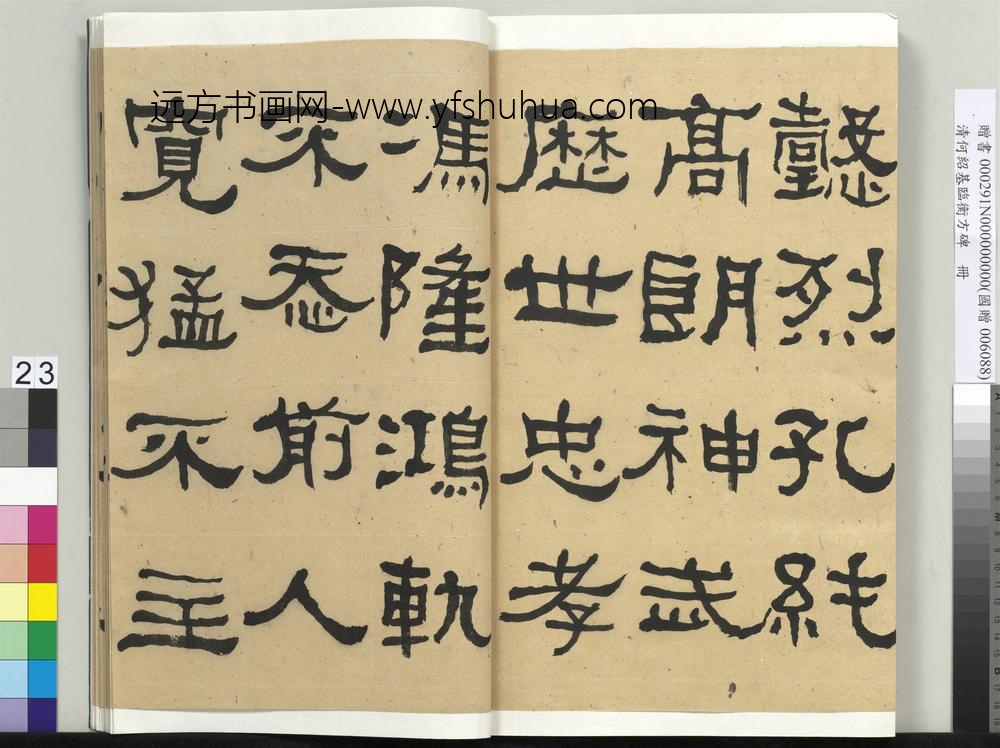 远方书画网-www.yfshuhua.com
懿烈孔純
高朗神武
歷世忠孝
馮隆鴻軌
不忝前人
寬猛不主
贈書 000291N000000000(國贈 006088)
清何绍基臨衡方碑 冊
23